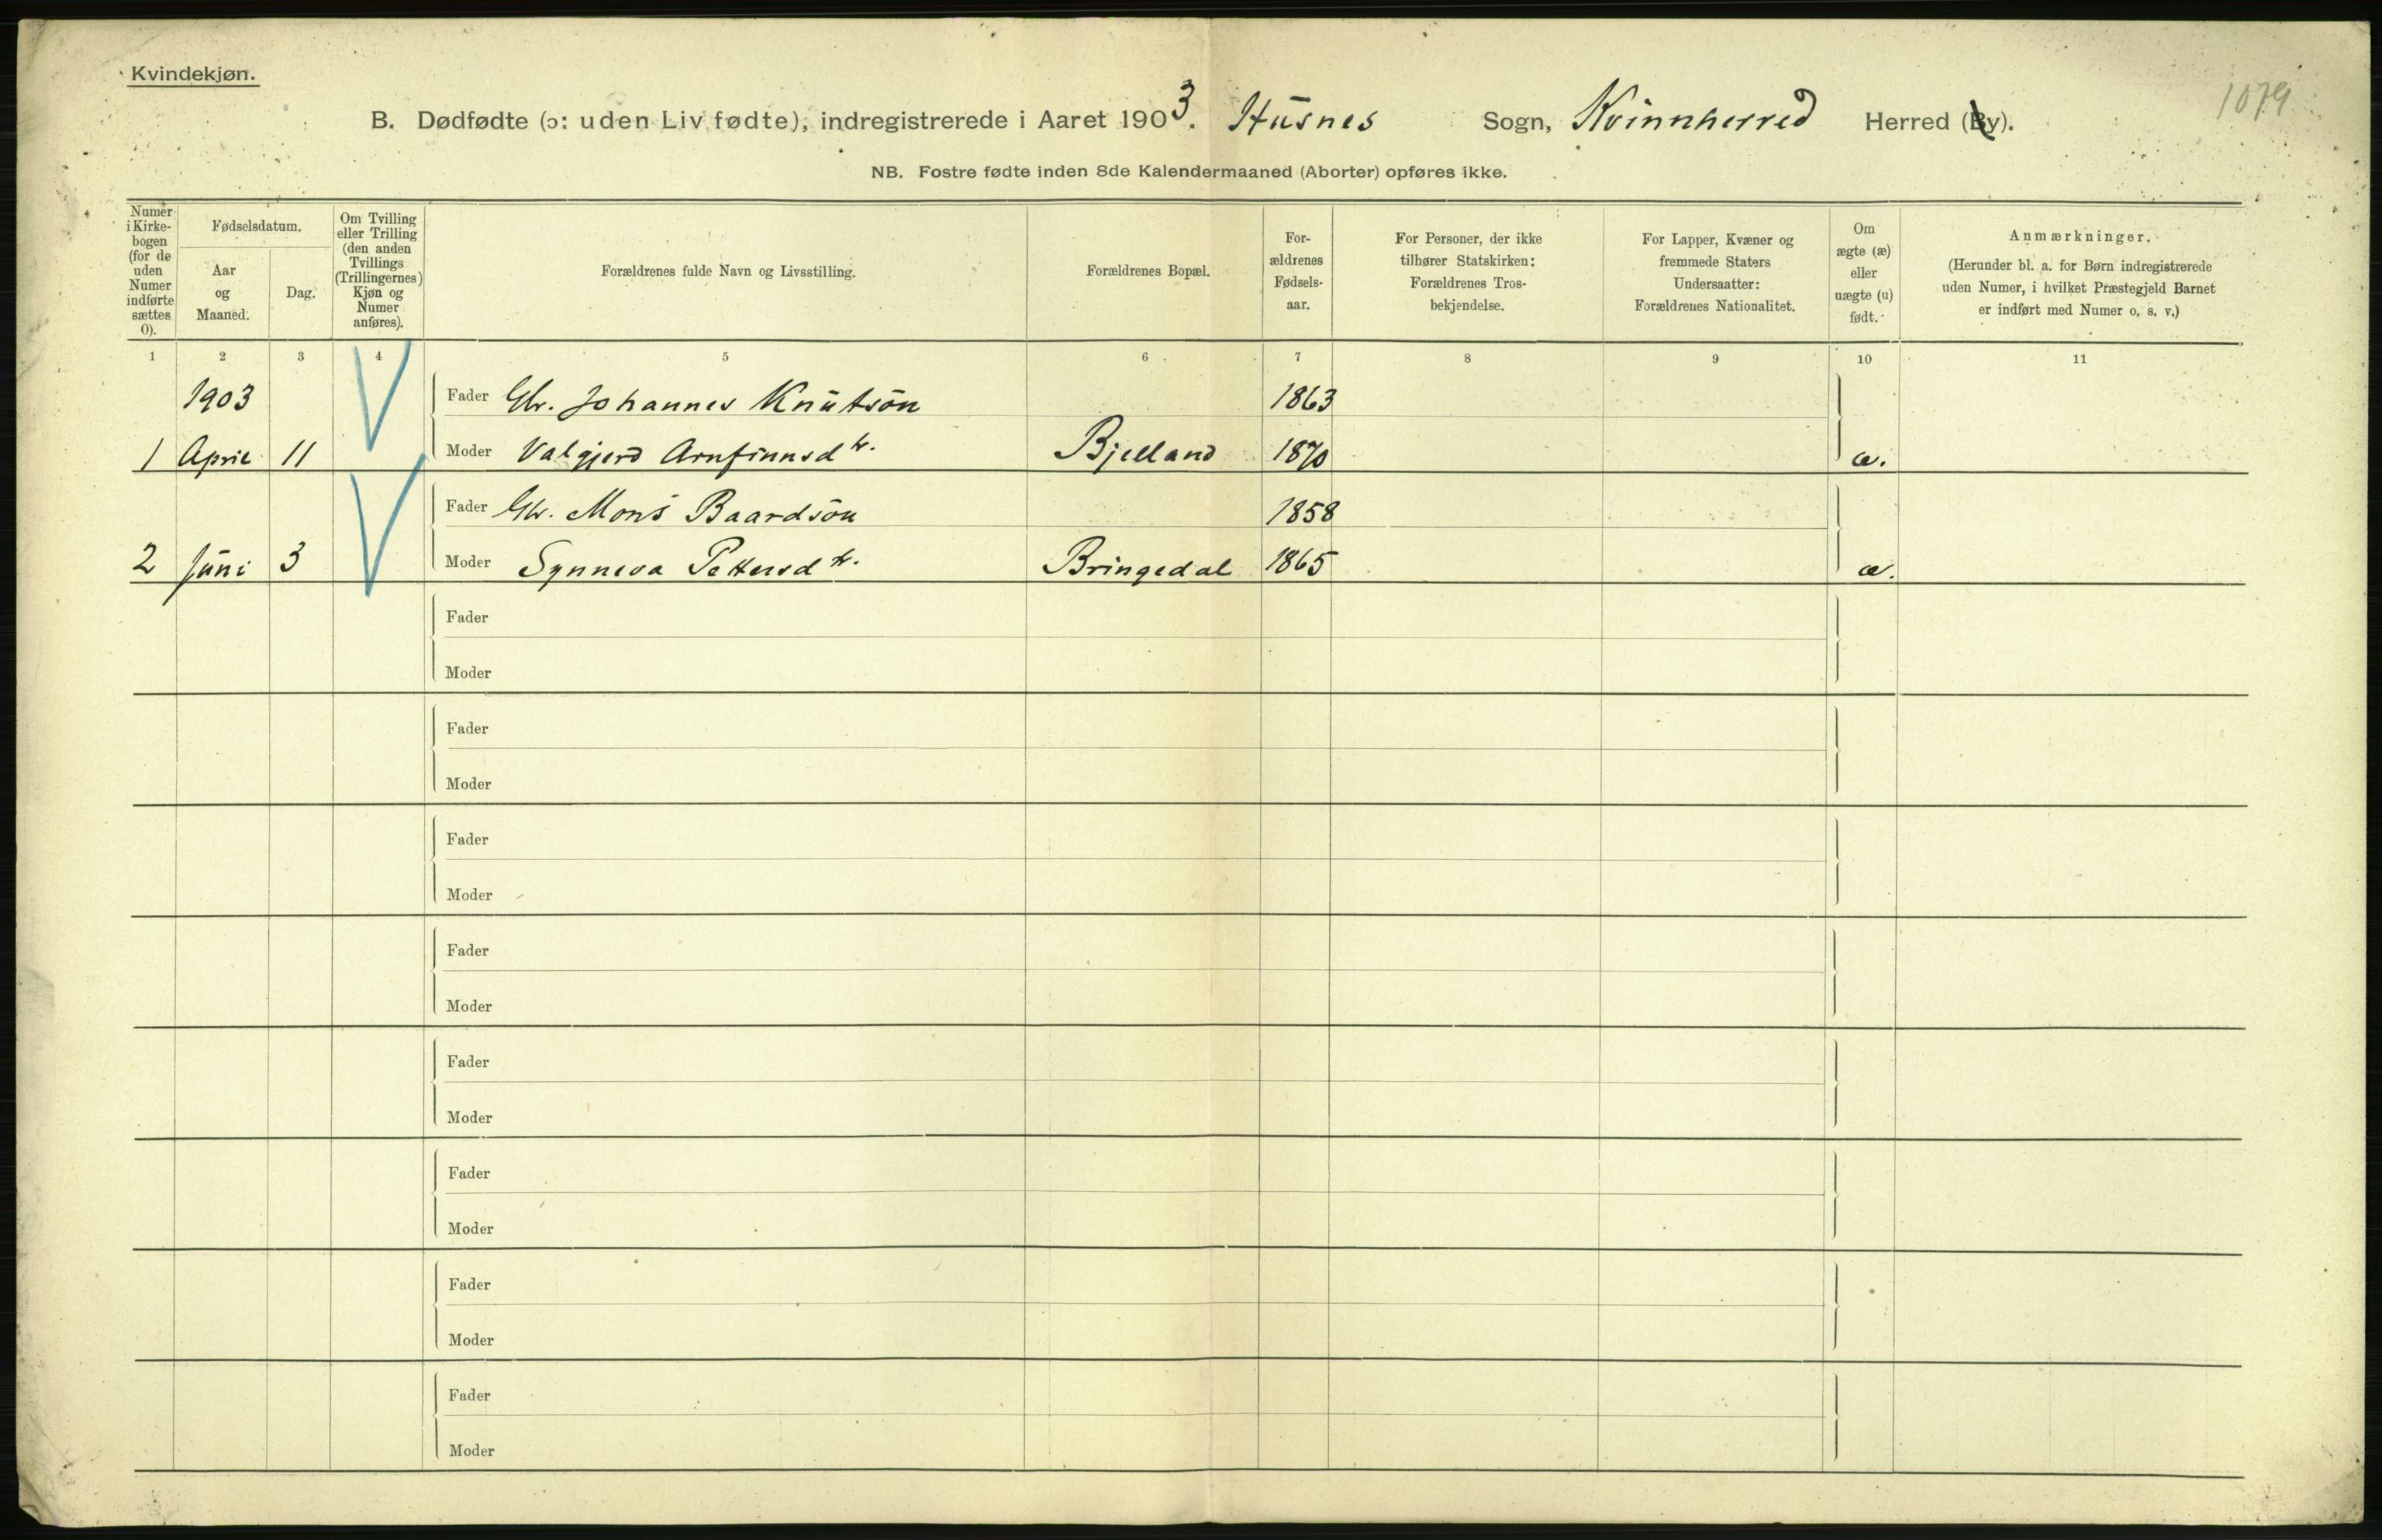 Kvindekjøn.
1079
B. Dødfødte (ɔ: uden Liv fødte), indregistrerede i Aaret 1903. Husnes Sogn, Kvinnherred Herred (By).
NB. Fostre fødte inden 8de Kalendermaaned (Aborter) opføres ikke.
Numer
i Kirke-
bogen
(for de
uden
Numer
indførte
sættes
0).
Fødselsdatum.
Aar
og
Maaned.
Dag.
Om Tvilling
eller Trilling
(den anden
Tvillings
(Trillingernes)
Kjøn og
Numer
anføres).
Forældrenes fulde Navn og Livsstilling.
Forældrenes Bopæl.
For-
ældrenes
Fødsels-
aar.
For Personer, der ikke
tilhører Statskirken:
Forældrenes Tros-
bekjendelse.
For Lapper, Kvæner og
fremmede Staters
Undersaatter:
Forældrenes Nationalitet.
Om
ægte (æ)
eller
uægte (u)
født.
Anmærkninger.
(Herunder bl. a. for Børn indregistrerede
uden Numer, i hvilket Præstegjeld Barnet
er indført med Numer o. s. v.)
1 2 3 4 5 6 7 8 9 10 11
1903 Fader Gbr. Johannes Knutsøn 1863
1 April 11 Moder Valgjerd Arnfinnsdtr. Bjelland 1870 æ.
Fader Gbr. Mons Baardsøn 1858
2 Juni 3 Moder Synneva Pettersdtr. Bringedal 1865 æ.
Fader
Moder
Fader
Moder
Fader
Moder
Fader
Moder
Fader
Moder
Fader
Moder
Fader
Moder
Fader
Moder